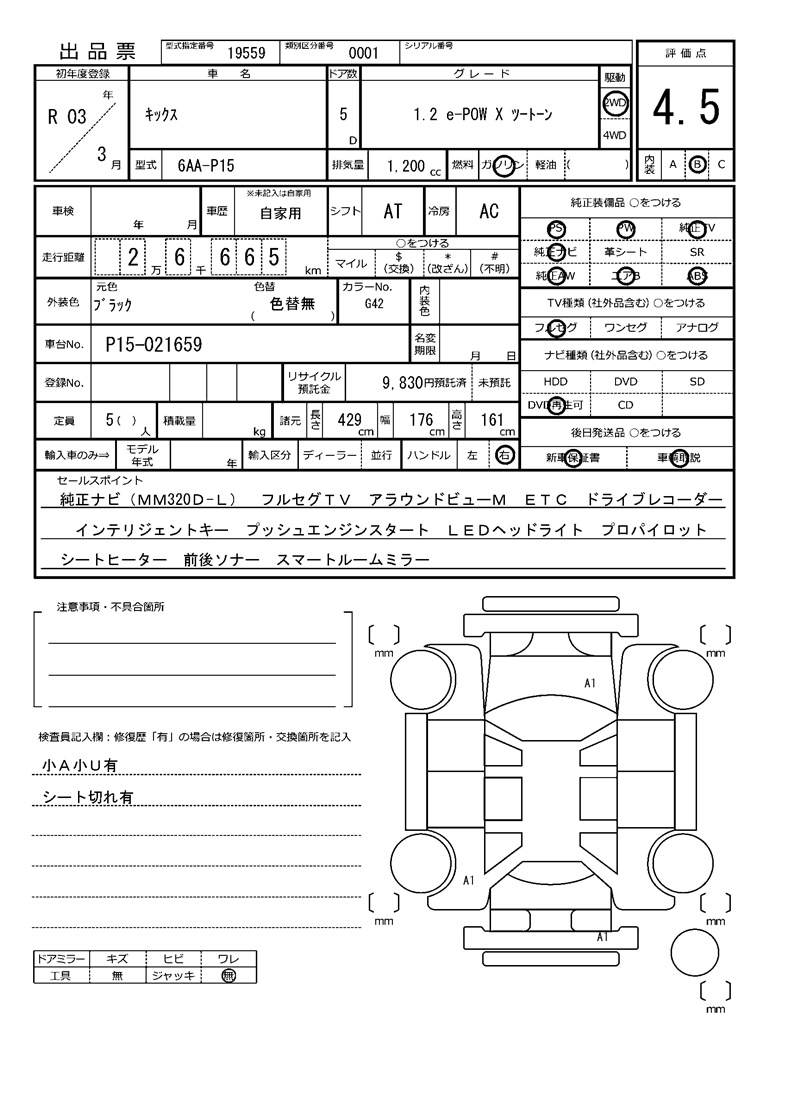 出品票 型式指定番号 19559 類別区分番号 0001 シリアル番号
評価点
4.5
内装 A B C
初年度登録 車名 ドア数 グレード 駆動
R 03 年 3 月 キックス 5 D 1.2 e-POW X ツートーン 2WD
4WD
型式 6AA-P15 排気量 1,200 cc 燃料 ガソリン 軽油 ( )
車検 年 月 車歴 ※未記入は自家用 自家用 シフト AT 冷房 AC
走行距離 2 万 6 千 6 6 5 km ○をつける
マイル $(交換) *(改ざん) #(不明)
外装色 元色 ブラック 色替 色替無 ( ) カラーNo. G42 内装色
車台No. P15-021659 名変期限 月 日
登録No. リサイクル預託金 9,830円預託済 未預託
定員 5( ) 人 積載量 kg 諸元 長さ 429 cm 幅 176 cm 高さ 161 cm
輸入車のみ⇒ モデル年式 年 輸入区分 ディーラー 並行 ハンドル 左 右
純正装備品 ○をつける
PS PW 純正TV
純正ナビ 革シート SR
純正AW エアB ABS
TV種類(社外品含む)○をつける
フルセグ ワンセグ アナログ
ナビ種類(社外品含む)○をつける
HDD DVD SD
DVD再生可 CD
後日発送品 ○をつける
新車保証書 車輌取説
セールスポイント
純正ナビ(MM320D-L) フルセグTV アラウンドビューM ETC ドライブレコーダー
インテリジェントキー プッシュエンジンスタート LEDヘッドライト プロパイロット
シートヒーター 前後ソナー スマートルームミラー
注意事項・不具合箇所
検査員記入欄:修復歴「有」の場合は修復箇所・交換箇所を記入
小A小U有
シート切れ有
ドアミラー キズ ヒビ ワレ
工具 無 ジャッキ 無
mm mm
A1
A1
A1
mm mm
mm